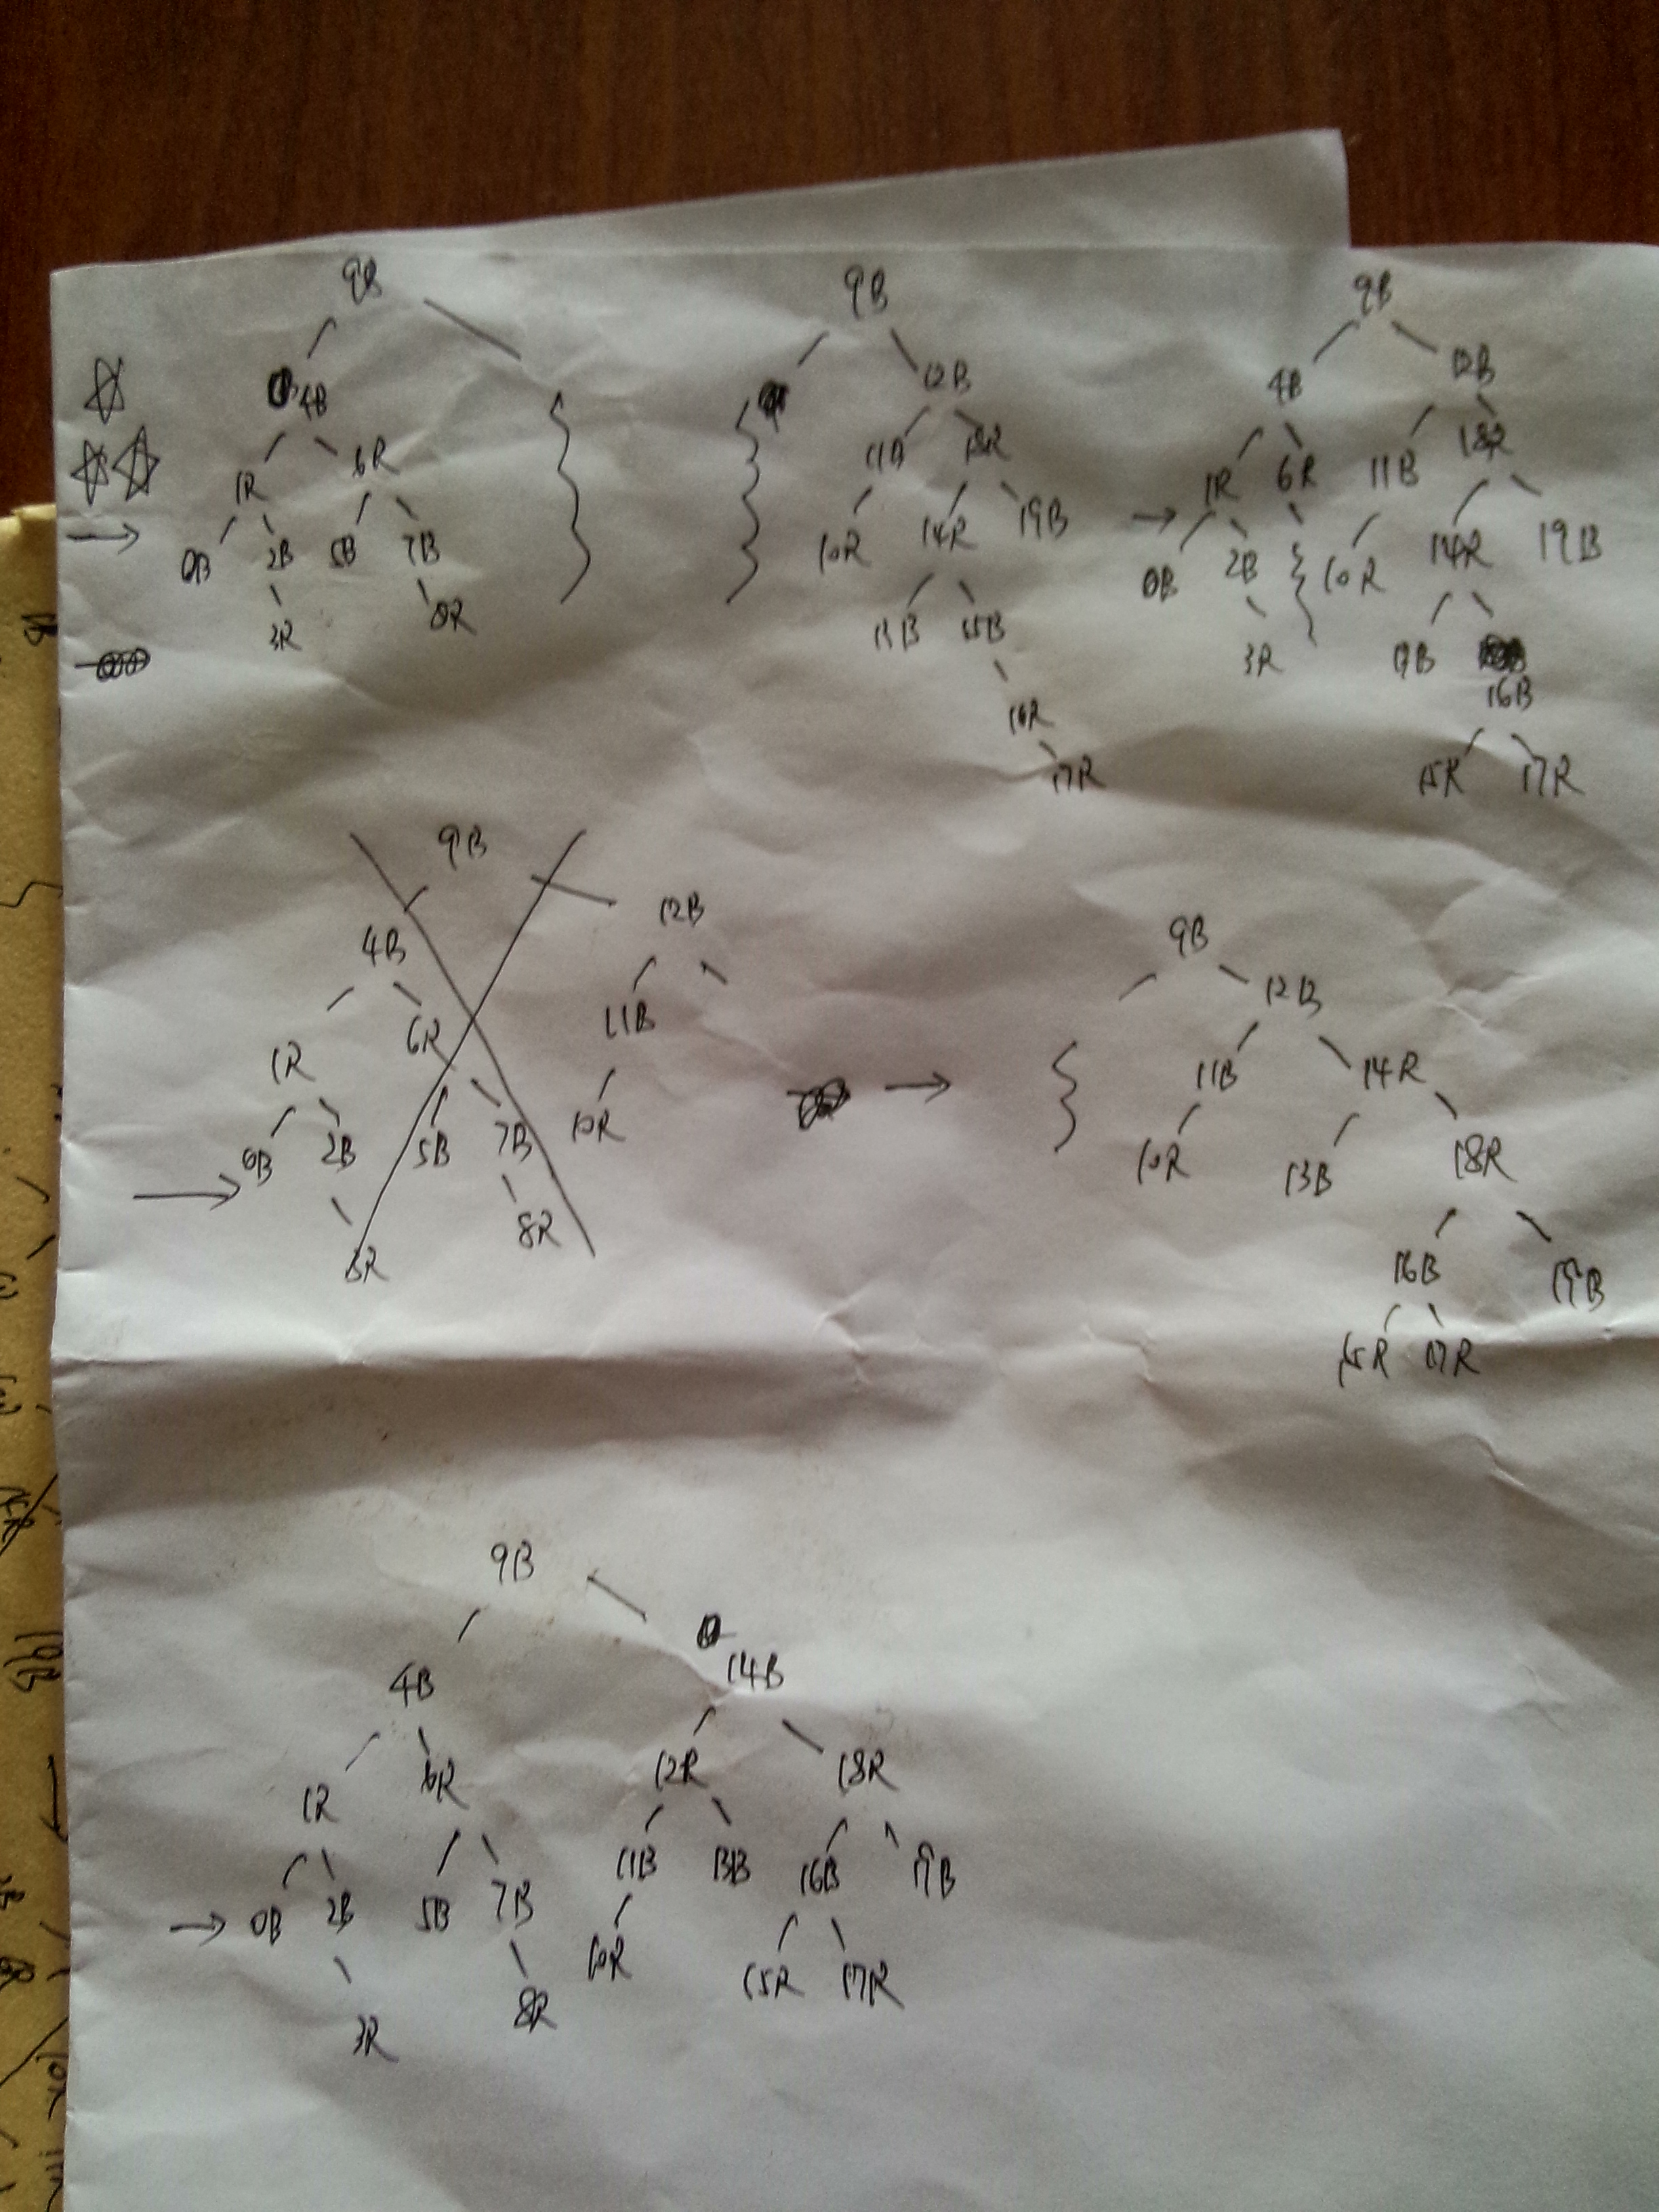 9B
4B
1R 6R
0B 2B 5B 7B
3R 8R
9B
12B
11B 18R
10R 14R 19B
13B 15B
16R
17R
9B
4B 12B
1R 6R 11B 18R
0B 2B 10R 14R 19B
3R 13B
16B
15R 17R
9B
4B 12B
1R 6R 11B
0B 2B 5B 7B 10R
3R 8R
9B
12B
11B 14R
10R 13B 18R
16B 19B
15R 17R
9B
4B 14B
1R 6R 12R 18R
0B 2B 5B 7B 11B 13B 16B 19B
3R 8R 10R 15R 17R